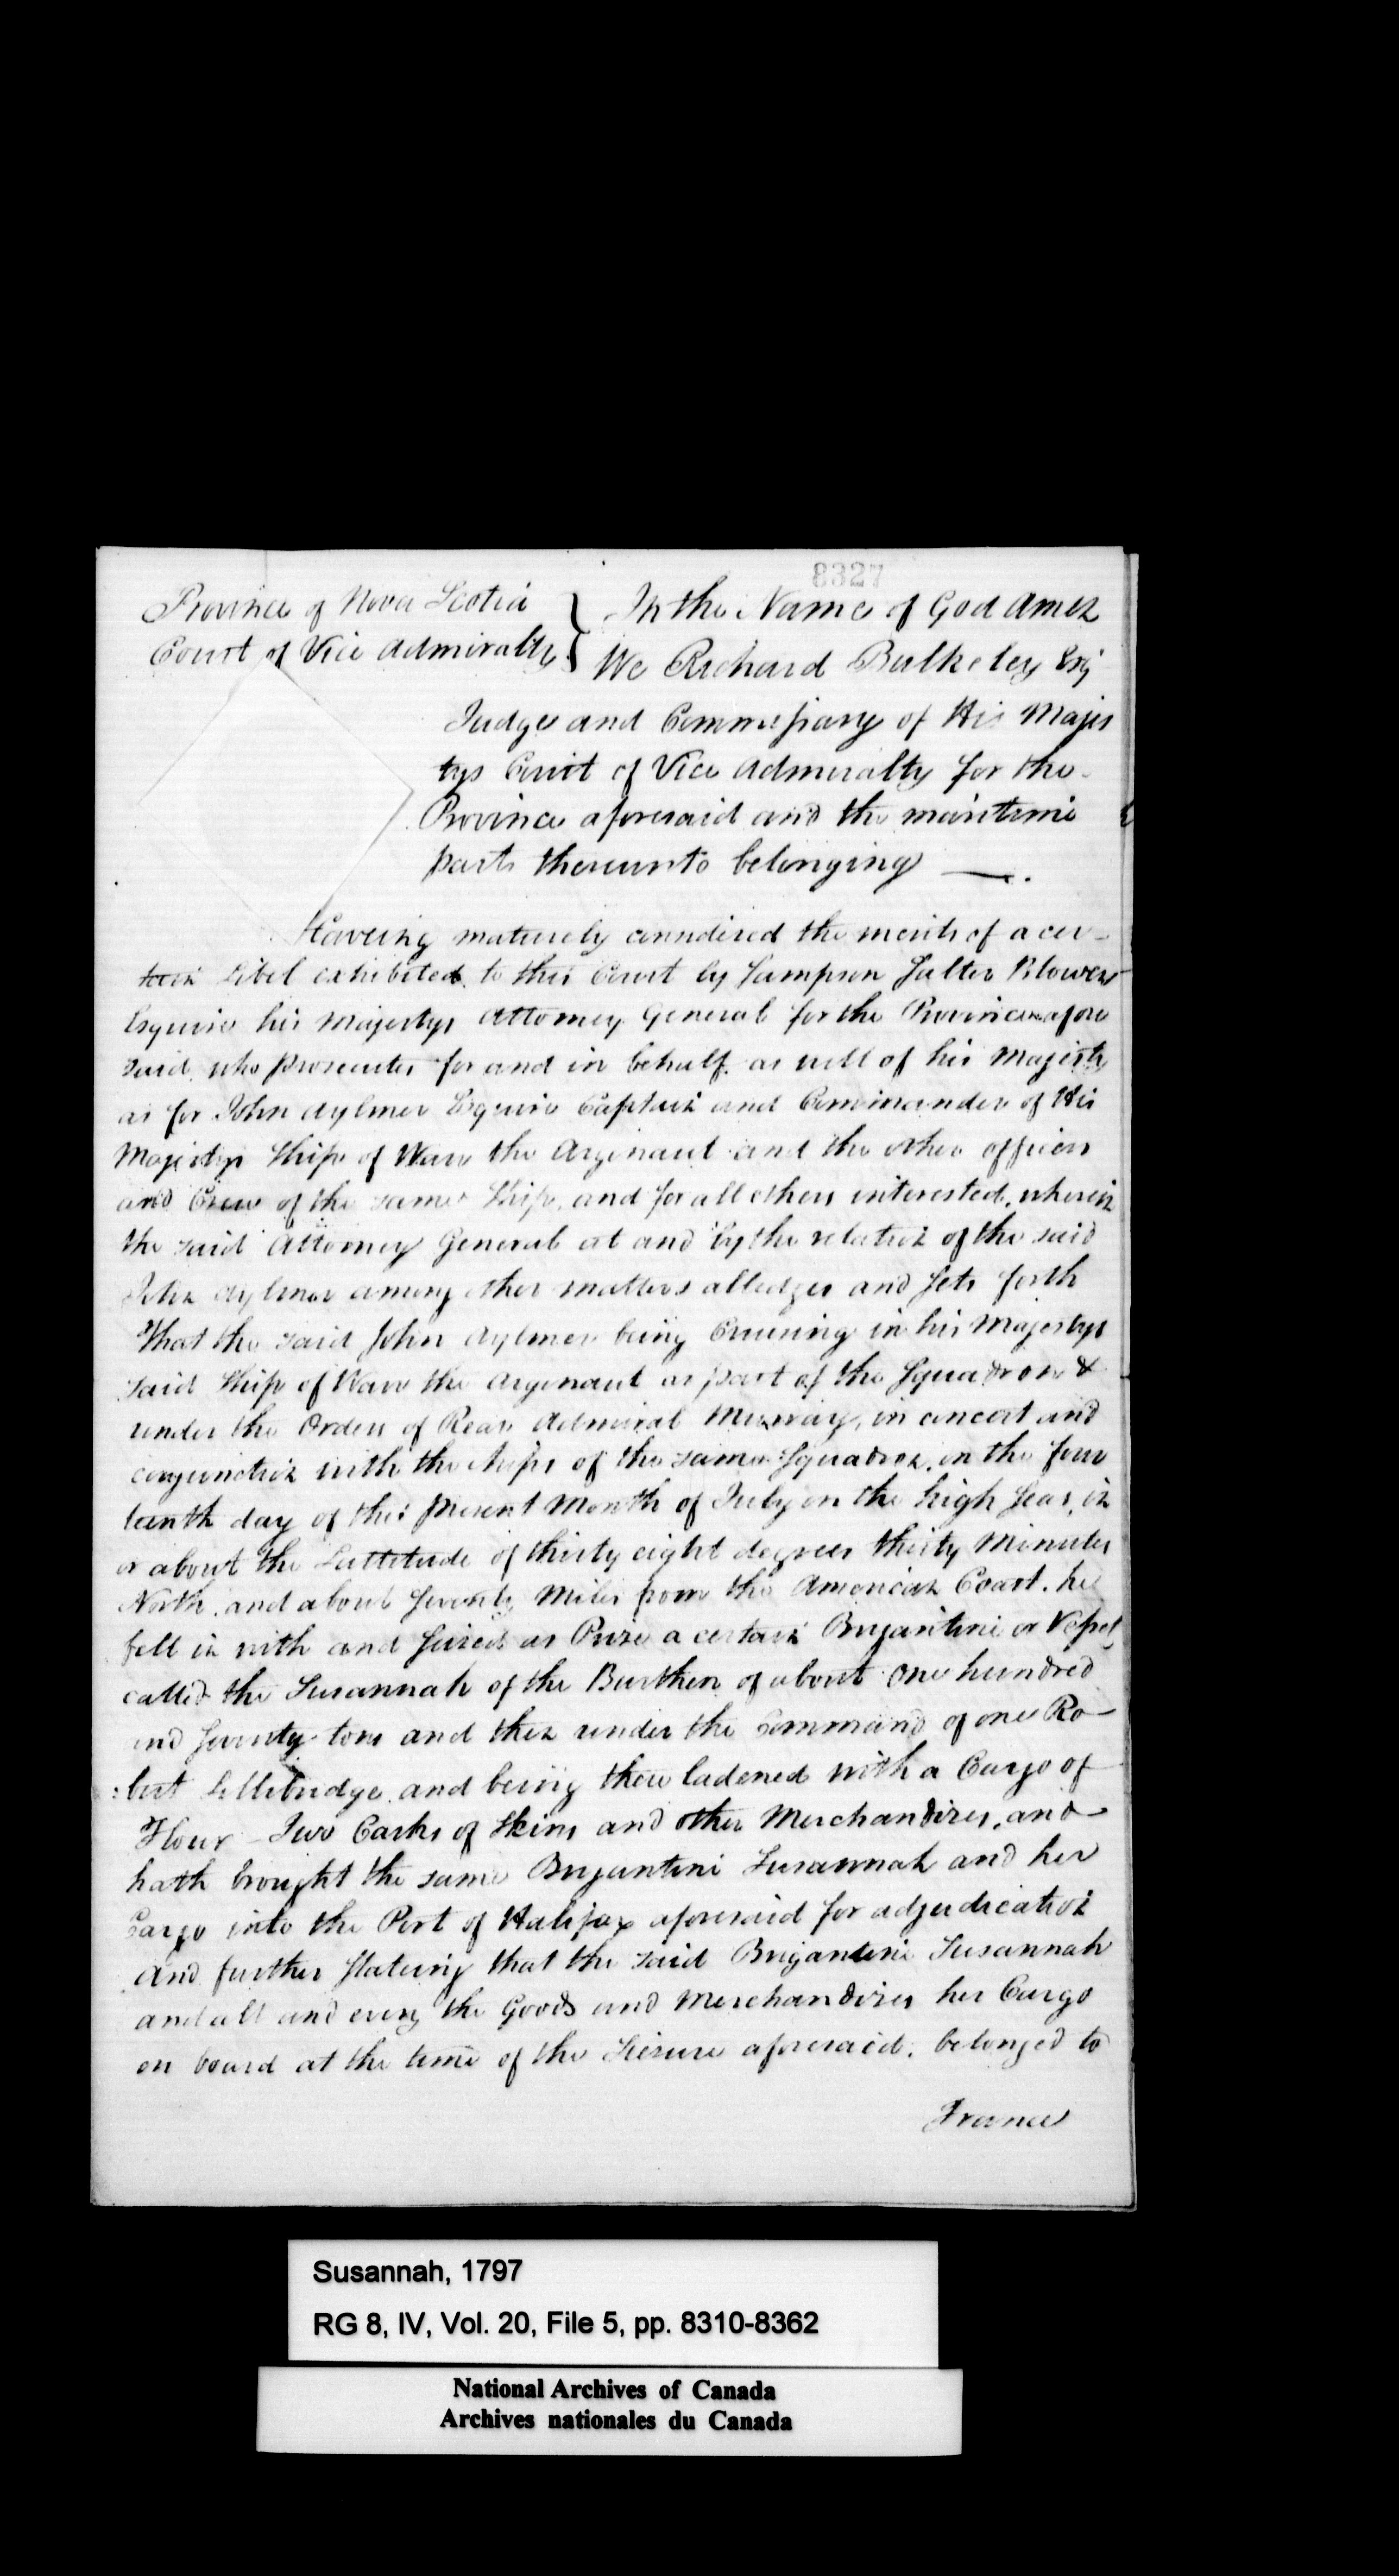 8327
Province of Nova Scotia
Court of Vice Admiralty
In the Name of God Amen
We Richard Bulkeley Esq
Judge and Commissiary of His Majes
tys Court of Vice Admiralty for the
Province aforesaid and the maritime
parts thereunto belonging —.
Haveing maturely conndired the merits of a cer-
tain Libel exhibited to this Court by Sampson Salter Blowers
Esquire his Majestys Attorney General for the Province afore
said, who prosecutes for and in behalf as well of his Majesty
as for John Aylmer Esquire Captain and Commander of His
Majestys Ship of Warr the Argonaut and the other officers
and Crew of the same Ship, and for all others interested, wherein
the said Attorney General at and by the relation of the said
John Aylmer among other matters alledges and sets forth
That the said John Aylmer being Cruising in his Majestys
said Ship of Warr the Argonaut as part of the Squadron &
under the Orders of Rear Admiral Murray, in concert and
conjunction with the ships of the same Squadron, on the four
teenth day of this present Month of July on the high Seas, in
or about the Lattitude of thirty eight degrees thirty Minutes
North, and about seventy Miles from the American Coast, he
fell in with and seized as Prize a certain Brigantine or Vessel
called the Susannah of the Burthen of about one hundred
and seventy tons and then under the Command of one Ro-
:bert Lillibridge, and being then ladened with a Cargo of
Flour - Two Casks of Skins and other Merchandizes, and
hath brought the same Brigantine Susannah and her
Cargo into the Port of Halifax aforesaid for adjudication
And further stateing that the said Brigantine Susannah
and all and every the Goods and Merchandizes her Cargo
on board at the time of the Seizure aforesaid, belonged to
France
Susannah, 1797
RG 8, IV, Vol. 20, File 5, pp. 8310-8362
National Archives of Canada
Archives nationales du Canada